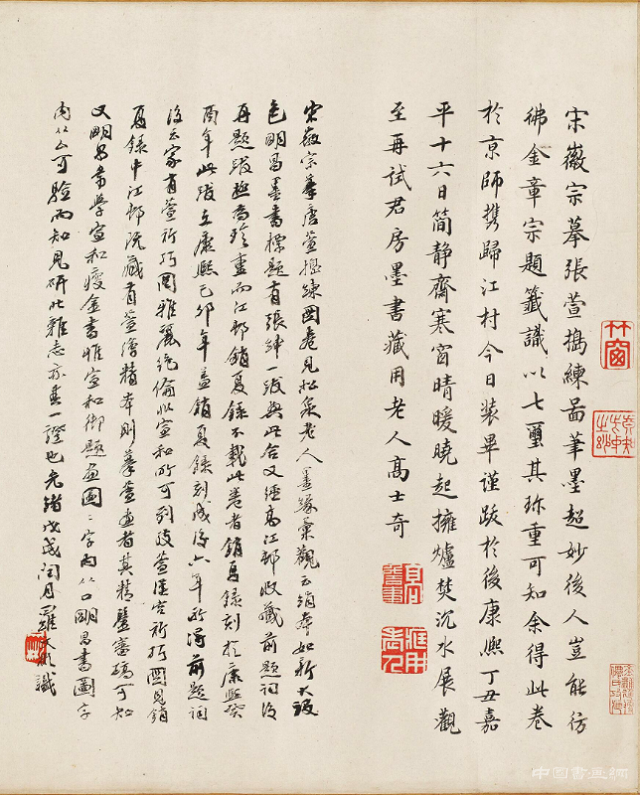 宋徽宗摹張萱搗練圖筆墨超妙後人豈能仿
彿金章宗題籤識以七璽其珍重可知余得此卷
於京師携歸江村今日裝畢謹跋於後康熙丁丑嘉
平十六日簡靜齋寒窗晴暖曉起擁爐焚沉水展觀
至再試君房墨書藏用老人高士奇
宋徽宗摹唐萱搗練圖卷見松泉老人墨緣彙觀云絹本如新大設
色明昌墨書標題有張紳一跋與此合又經高江邨收藏前題詞後
再題跋極為珍重而江邨銷夏錄不載此卷者銷夏錄刻於康熙癸
酉年此跋在康熙己卯年蓋銷夏錄刻成後六年所得前題詞
後云家有萱所巧圖雅麗絕倫以宣和所可到跋萱所巧圖見銷
夏錄中江邨既藏有萱繪精本則摹萱畫者其精鑒審確可知
又明昌書學宣和瘦金書惟宣和御題畫圖二字內从口明昌書圖字
內从厶可驗而知見研北雜志亦其一證也光緒戊戌閏月羅文彬識
竹窗
中国書画網